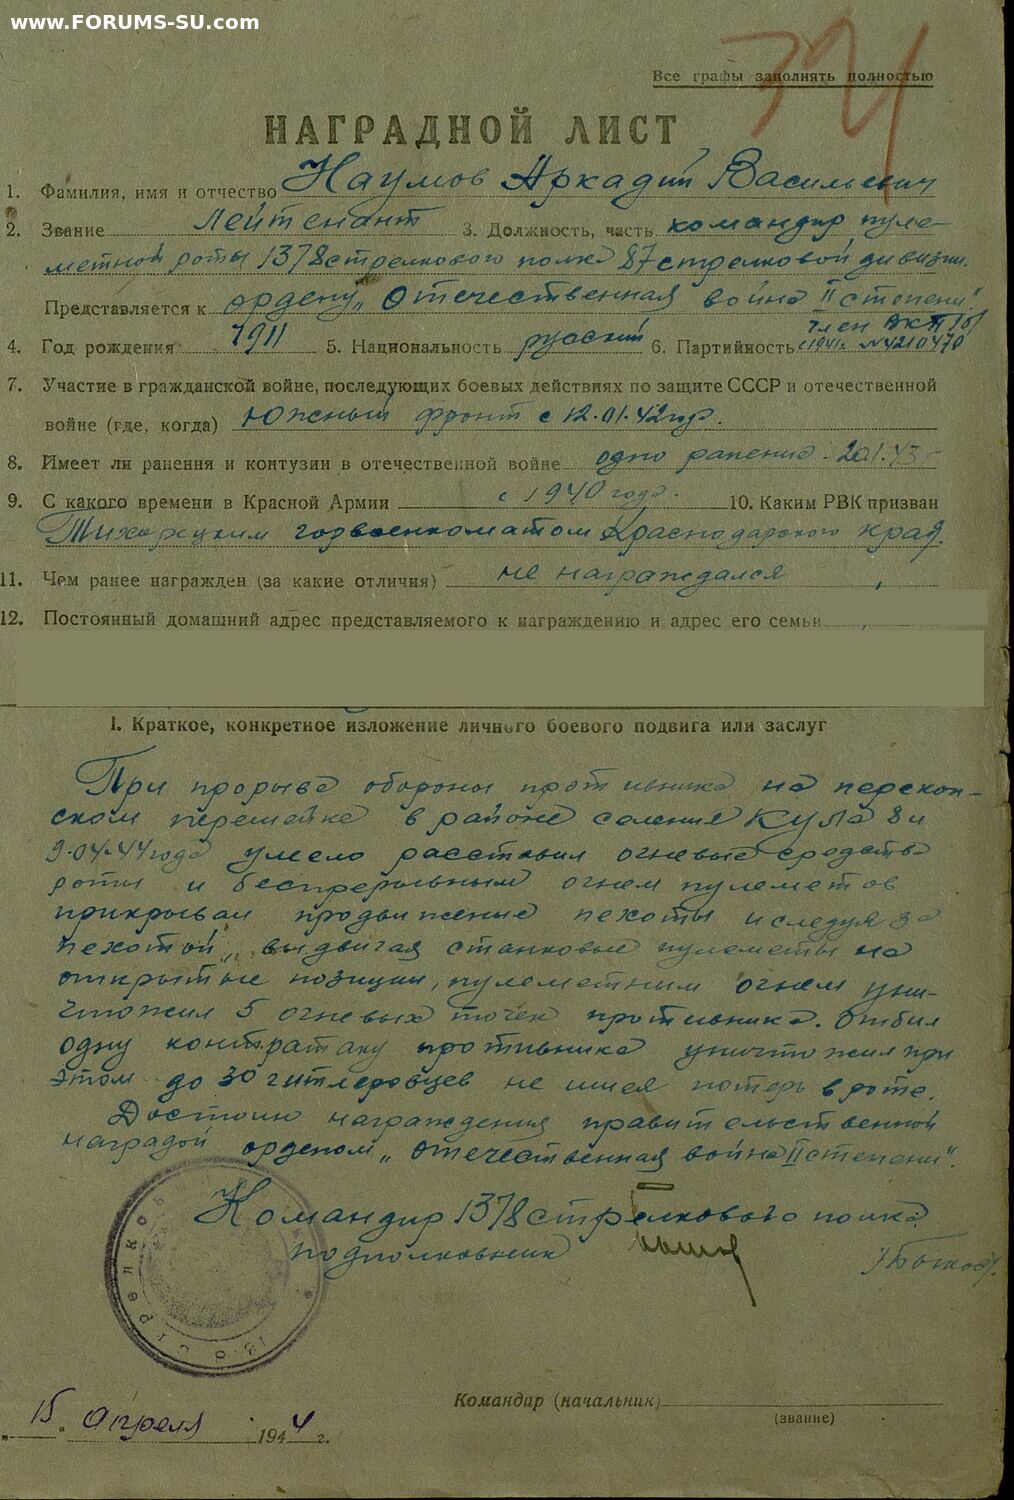 www.FORUMS-SU.com
Все графы заполнять полностью
НАГРАДНОЙ ЛИСТ
1. Фамилия, имя и отчество Наумов Аркадий Васильевич
2. Звание Лейтенант 3. Должность, часть командир пуле-
метной роты 1378 стрелкового полка 87 стрелковой дивизии.
Представляется к ордену „Отечественная война II степени".
4. Год рождения 1911 5. Национальность русский 6. Партийность член ВКП(б)
с 1941г. №4210470
7. Участие в гражданской войне, последующих боевых действиях по защите СССР и отечественной
войне (где, когда) Южный фронт с 12.01.42 год.
8. Имеет ли ранения и контузии в отечественной войне одно ранение
9. С какого времени в Красной Армии с 1940 года. 10. Каким РВК призван
Тихорецким горвоенкоматом Краснодарского края.
11. Чем ранее награжден (за какие отличия) не награждался
12. Постоянный домашний адрес представляемого к награждению и адрес его семьи
I. Краткое, конкретное изложение личного боевого подвига или заслуг
При прорыве обороны противника на перекоп-
ском перешейке в районе селения Кула 8 и
9.04.44 года умело расставил огневые средства
роты и беспрерывным огнем пулеметов
прикрывал продвижение пехоты и следуя за
пехотой, выдвигая станковые пулеметы на
открытые позиции, пулеметным огнем уни-
чтожил 5 огневых точек противника. Отбил
одну контратаку противника уничтожил при
этом до 30 гитлеровцев не имея потерь в роте.
Достоин награждения правительственной
наградой орденом „Отечественная война II степени".
Командир 1378 стрелкового полка
подполковник
15 Апреля 1944 г.
Командир (начальник)
(звание)